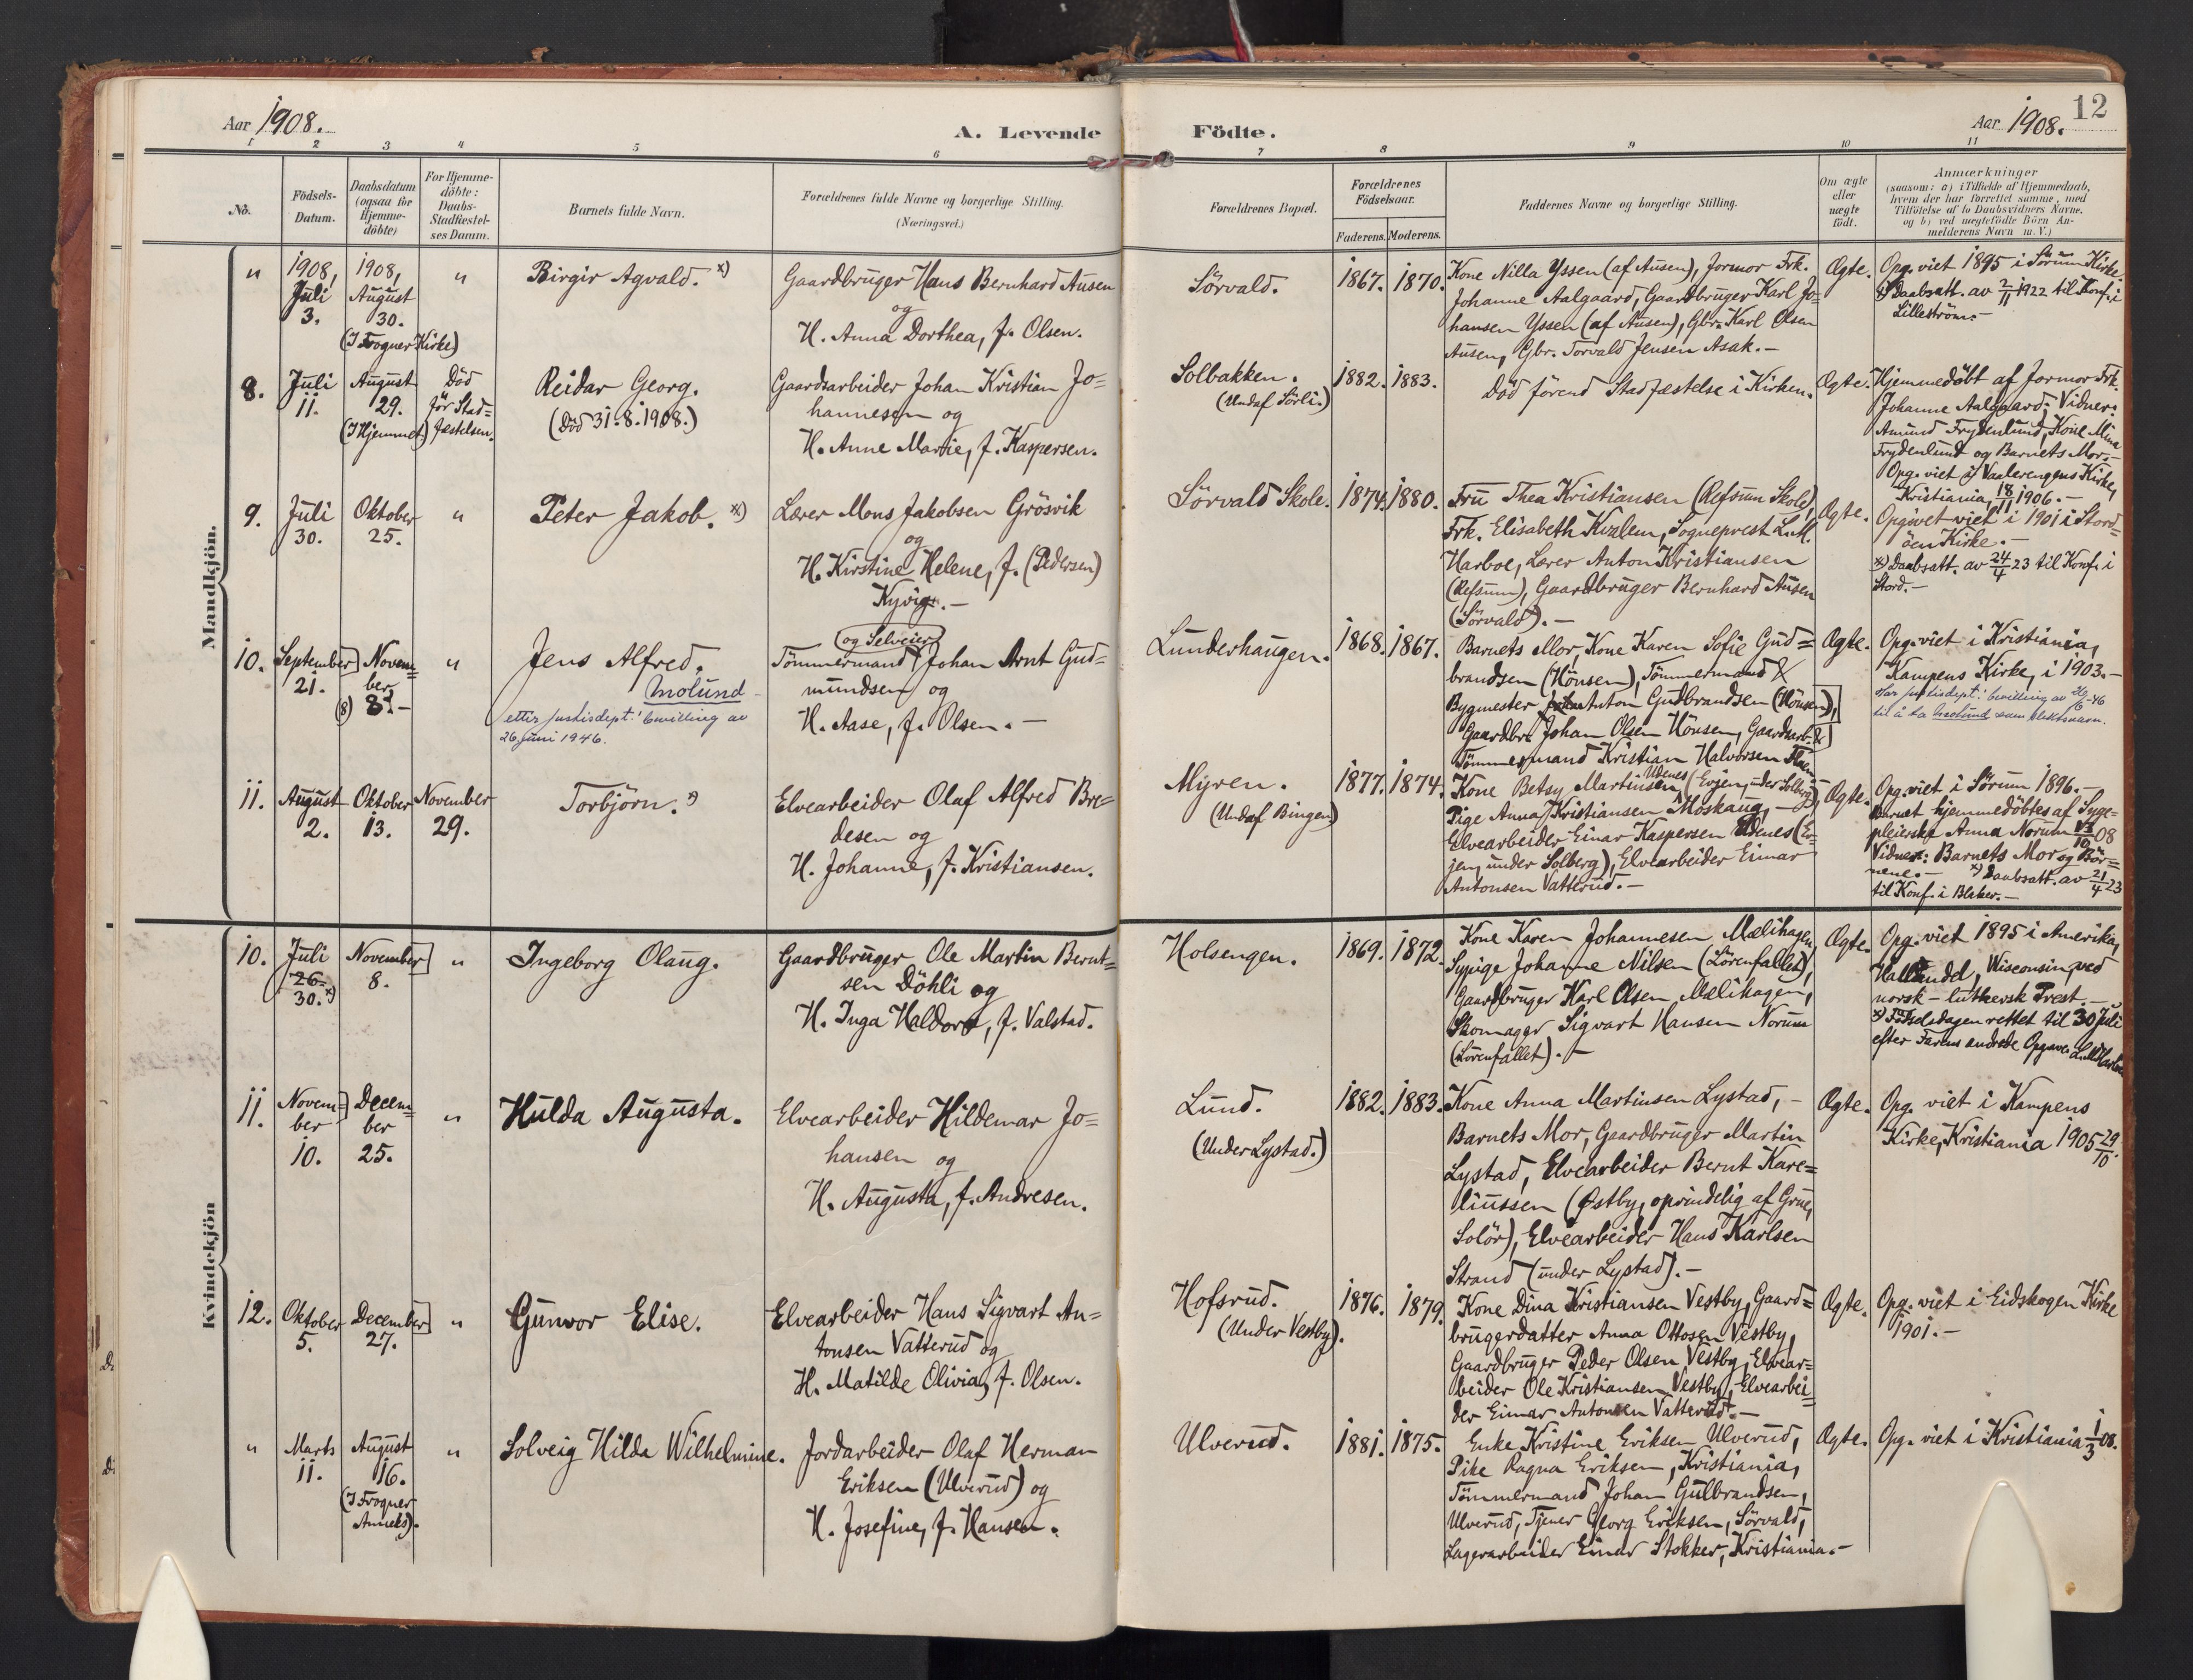 Aar 1908.
A. Levende Födte.
Aar 1908. 12
1 2 3 4 5 6 7 8 9 10 11
No.
Födsels-
Datum.
Daabsdatum
(ogsaa for
Hjemme-
döbte)
For Hjemme-
döbte:
Daabs-
Stadfæstel-
ses Datum.
Barnets fulde Navn.
Forældrenes fulde Navne og borgerlige Stilling.
(Næringsvei.)
Forældrenes Bopæl.
Forældrenes
Födselsaar.
Faderens. Moderens.
Faddernes Navne og borgerlige Stilling.
Om ægte
eller
uægte
födt.
Anmærkninger
(saasom: a) i Tilfælde af Hjemmedaab,
hvem der har forrettet samme, med
Tilföielse af to Daabsvidners Navne.
og b) ved uægtefödte Börn An-
melderens Navn m. V.)
Mandkjön.
"
1908,
Juli
3.
1908,
August
30.
(I Frogner Kirke)
"
Birgir Agvald. x)
Gaardbruger Hans Bernhard Ausen
og
H. Anna Dorthea, f. Olsen.
Sörvald.
1867. 1870.
Kone Nilla Yssen (af Ausen), Jormor Frk.
Johanne Aalgaard, Gaardbruger Karl Jo-
hansen Yssen (af Ausen), Gbr. Karl Olsen
Ausen, Gbr. Torvald Jensen Asak.-
Ægte.
Opg. viet 1895 i Sörum Kirke.
x) Daabsatt. av 2/11 1922 til Konf. i
Lilleström.-
8.
Juli
11.
August
29.
(I Hjemmet)
Död
för Stad=
fæstelsen.
Reidar Georg.
(Död 31.8.1908.)
Gaardsarbeider Johan Kristian Jo=
hannesen og
H. Anne Marie, f. Kaspersen.
Solbakken.
(Undaf Sörli.)
1882. 1883.
Död förend Stadfæstelse i Kirken.
Ægte.
Hjemmedöbt af Jormor Frk.
Johanne Aalgaard; Vidner:
Amund Frydenlund, Kone Mina
Frydenlund og Barnets Mor.-
Opg. viet i Vaalerengens Kirke,
Kristiania, 18/11 1906.-
9.
Juli
30.
Oktober
25.
"
Peter Jakob. x)
Lærer Mons Jakobsen Grösvik
og
H. Kirstine Helene, f. (Pedersen)
Kyvig.-
Sörvald Skole.
1874. 1880.
Fru Thea Kristiansen (Refsum Skole),
Frk. Elisabeth Kvalem, Sogneprest Lull.
Harboe, Lærer Anton Kristiansen
(Refsum), Gaardbruger Bernhard Ausen
(Sörvald).-
Ægte.
Opgivet viet i 1901 i Stord=
öen Kirke.-
x) Daabsatt. av 24/4 23 til Konf. i
Stord.-
10.
September
21.
Novem=
ber
(8) 8.-
"
Jens Alfred.
Molund
etter justisdept.' bevilling av
26 juni 1946.
(og Selveier)
Tömmermand Johan Arnt Gud=
mundsen og
H. Aase, f. Olsen.-
Lunderhaugen.
1868. 1867.
Barnets Mor, Kone Karen Sofie Gud=
brandsen (Hönsen), Tömmermand &
Bygmester Anton Gudbrandsen (Hönsen),
Gaardbr. Johan Olsen Hönsen, Gaardsarb. &
Tömmermand Kristian Halvorsen
Ægte.
Opg. viet i Kristiania,
Kampens Kirke, i 1903.-
Har justisdept.' bevilling av 26/6-46
til å ta Molund som slektsnavn.
11.
August
2.
Oktober
13.
November
29.
Torbjörn. x)
Elvearbeider Olaf Alfred Bre=
desen og
H. Johanne, f. Kristiansen.
Myren.
(Undaf Bingen)
1877. 1874.
Kone Betsy Martinsen Udenes (Evjen, under Solberg),
Pige Anna Kristiansen Moskaug,-
Elvearbeider Einar Kaspersen Udenes (Ev-
jen, under Solberg), Elvearbeider Einar
Antonsen Vatterud.-
Ægte.
Opg. viet i Sörum 1896.-
Barnet hjemmedöbtes af Syge=
pleierske Anna Norum 13/10 08
Vidner: Barnets Mor og Bör=
nene.- x) Daabsatt. av 21/4 23
til Konf. i Blaker.-
Kvindekjön
10.
Juli
26.
30. x)
November
8.
"
Ingeborg Olaug.
Gaardbruger Ole Martin Bernt=
sen Döhli og
H. Inga Haldora, f. Valstad.
Holsengen.
1869. 1872.
Kone Karen Johannesen Mælihagen,
Sypige Johanne Nilsen (Lörenfallet),
Gaardbruger Karl Olsen Mælihagen,
Skomager Sigvart Hansen Norum
(Lörenfallet).-
Ægte.
Opg. viet 1895 i Amerika,
Wisconsin, ved
norsk-luthersk Prest.-
x) Födselsdagen rettet til 30 Juli
efter Farens ændrede Opgave. Lull Harboe
11.
Novem=
ber
10.
Decem=
ber
25.
"
Hulda Augusta.
Elvearbeider Hildemar Jo=
hansen og
H. Augusta, f. Andresen.
Lund.
(Under Lystad.)
1882. 1883.
Kone Anna Martinsen Lystad,-
Barnets Mor, Gaardbruger Martin
Lystad, Elvearbeider Bernt Kare=
liussen (Østby, oprindelig af Grue,
Solör), Elvearbeider Hans Karlsen
Strand (under Lystad).-
Ægte.
Opg. viet i Kampens
Kirke, Kristiania 1905 29/10.
12.
Oktober
5.
December
27.
"
Gunvor Elise.
Elvearbeider Hans Sigvart An=
tonsen Vatterud og
H. Matilde Olivia, f. Olsen.
Hofsrud.
(Under Vestby).
1876. 1879.
Kone Dina Kristiansen Vestby, Gaard=
brugerdatter Anna Ottosen Vestby,
Gaardbruger Peder Olsen Vestby, Elvear=
beider Ole Kristiansen Vestby, Elvearbei=
der Einar Antonsen Vatterud.-
Ægte.
Opg. viet i Eidskogen Kirke
1901.-
"
Marts
11.
August
16.
(I Frogner
Anneks).
"
Solveig Hilda Wilhelmine.
Jordarbeider Olaf Herman
Eriksen (Ulverud) og
H. Josefine, f. Hansen.
Ulverud.
1881. 1875.
Enke Kristine Eriksen Ulverud,
Pike Ragna Eriksen, Kristiania,
Tömmermand Johan Gulbrandsen,
Ulverud, Tjener Georg Eriksen, Sörvald,
Lagerarbeider Einar Stokker, Kristiania.-
Ægte.
Opg. viet i Kristiania 1/3 08.